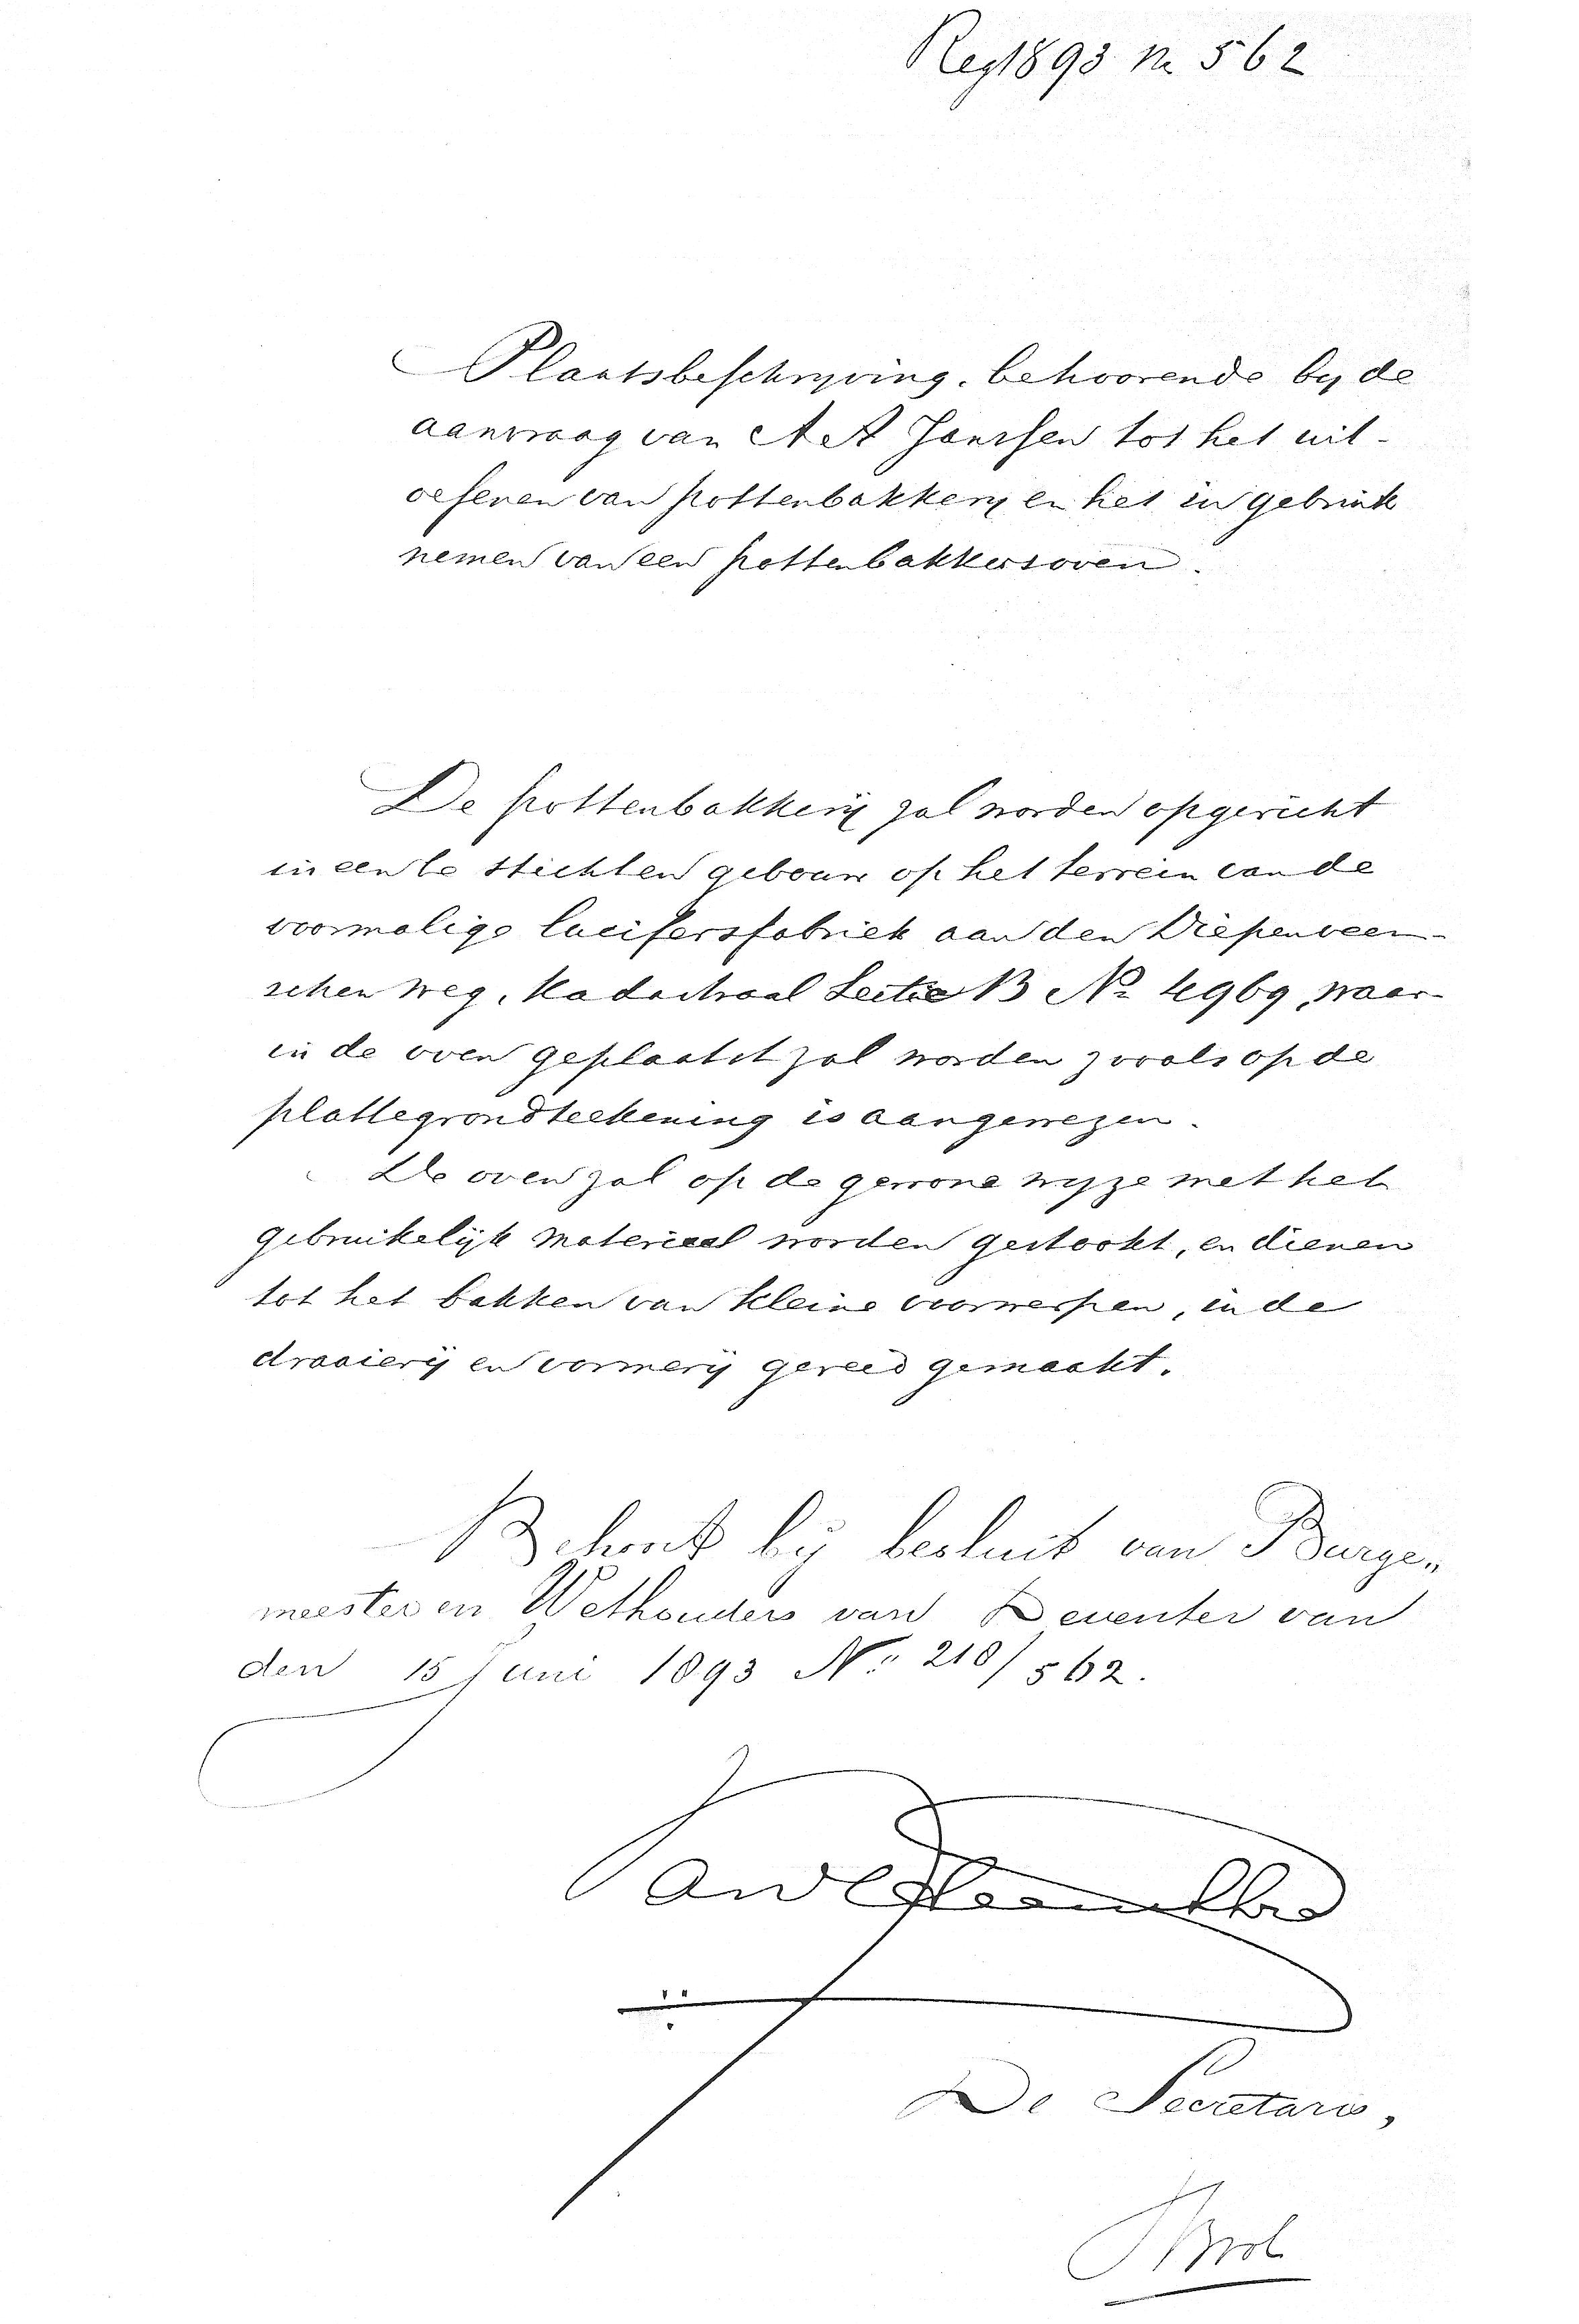 Reg 1893 No 562
Plaatsbeschrijving, behoorende bij de
aanvraag van A A Janssen tot het uit-
oefenen van pottenbakkerij en het in gebruik
nemen van een pottenbakkersoven.
De pottenbakkerij zal worden opgericht
in een te stichten gebouw op het terrein van de
voormalige lucifersfabriek aan den Diepenveen-
schen weg, Kadastraal Sectie B No 4969, waar-
in de oven geplaatst zal worden zooals op de
plattegrondteekening is aangewezen.
De oven zal op de gewone wijze met het
gebruikelijk materiaal worden gestookt, en dienen
tot het bakken van kleine voorwerpen, in de
draaierij en vormerij gereed gemaakt.
Behoort bij besluit van Burge„
meester en Wethouders van Deventer van
den 15 Juni 1893 No 210/562.
De Secretaris,